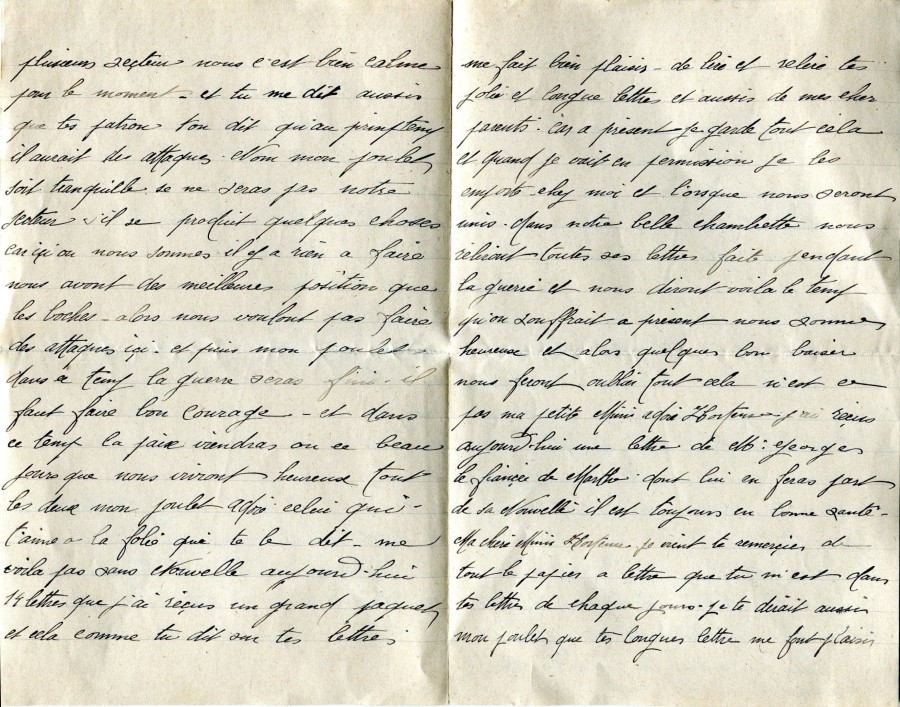 plusieurs secteur nous c'est bien calme
pour le moment - et tu me dit aussis
que tes patron ton dit qu'au printemp
il aurait des attaques. Nom mon poulet
soit tranquille se ne seras pas notre
secteur s'il se produit quelques choses
car içi ou nous sommes il y a rien a faire
nous avont des meilleures position que
les boches - alors nous voulont pas faire
des attaques içi - et puis mon poulet
dans ce temp la guerre seras fini - il
faut faire bon courage - et dans
ce temp la paix viendras ou ce beau
jours que nous vivront heureux tout
les deux mon poulet adoré celui qui
t'aime a la folie que te le dit - me
voila pas sans Nouvelle aujourd-hui
14 lettres que j'ai reçus un grand paquet
et cela comme tu dit sur tes lettres
me fait bien plaisir - de lire et relire tes
jolie et longue lettres et aussis de mes cher
parents. Car a présent je garde tout cela
et quand je vait en permission je les
emporte chez moi et lorsque nous seront
unis - dans notre belle chambette nous
reliront toutes ses lettres faite pendant
la guerre et nous diront voila le temp
qu'on souffrait a présent nous somme
heureuse et alors quelques bon baiser
nous feront oublié tout cela n'est ce
pas ma petite Mimi adoré Hortense j'ai reçus
aujourd-hui une lettre de Mr. Georges
le fiancée de Marthe. dont lui en feras part
de sa Nouvelle il est toujours en bonne santé -
Ma chéri Mimi Hortense je vient te remercier de
tout le papier a lettre que tu m'est dans
tes lettres de chaque jours - je te dirait aussis
mon poulet que tes longues lettre me font plaisir